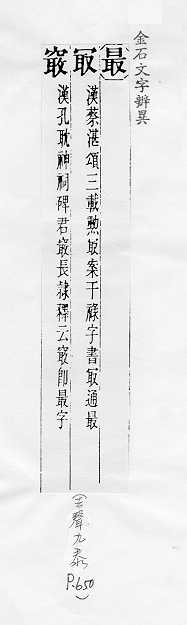 金石文字辨異
最
冣 漢蔡湛頌三載勲冣案干祿字書冣通最
㝡 漢孔耽神祠碑君㝡長隸釋云㝡即最字
(去聲九泰 P.650)